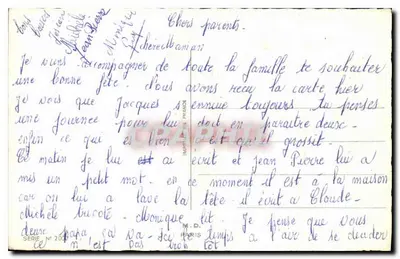 Chers parents.
Chère Maman
Je viens accompagner de toute la famille te souhaiter
une bonne fête. Nous avons reçu la carte hier
je vois que Jacques s'ennuie toujours. tu penses
une journée pour lui doit en paraître deux.
enfin ce qui est bien c'est qu'il grossit.
Ce matin je lui ai écrit et jean Pierre lui a
mis un petit mot. en ce moment il est à la maison
car on lui a lavé la tête. il écrit à Claude.
Michèle tricote. Monique lit. Je pense que vous
deux papa ça va. Ici le temps a l'air de se décider
ce n'est pas trop tôt
Jean Pierre
Monique